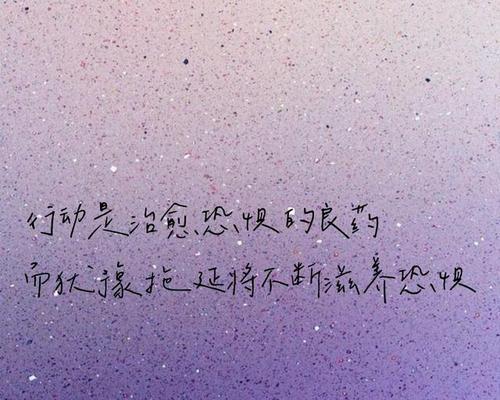 行动是治愈恐惧的良药
而犹豫拖延将不断滋养恐惧